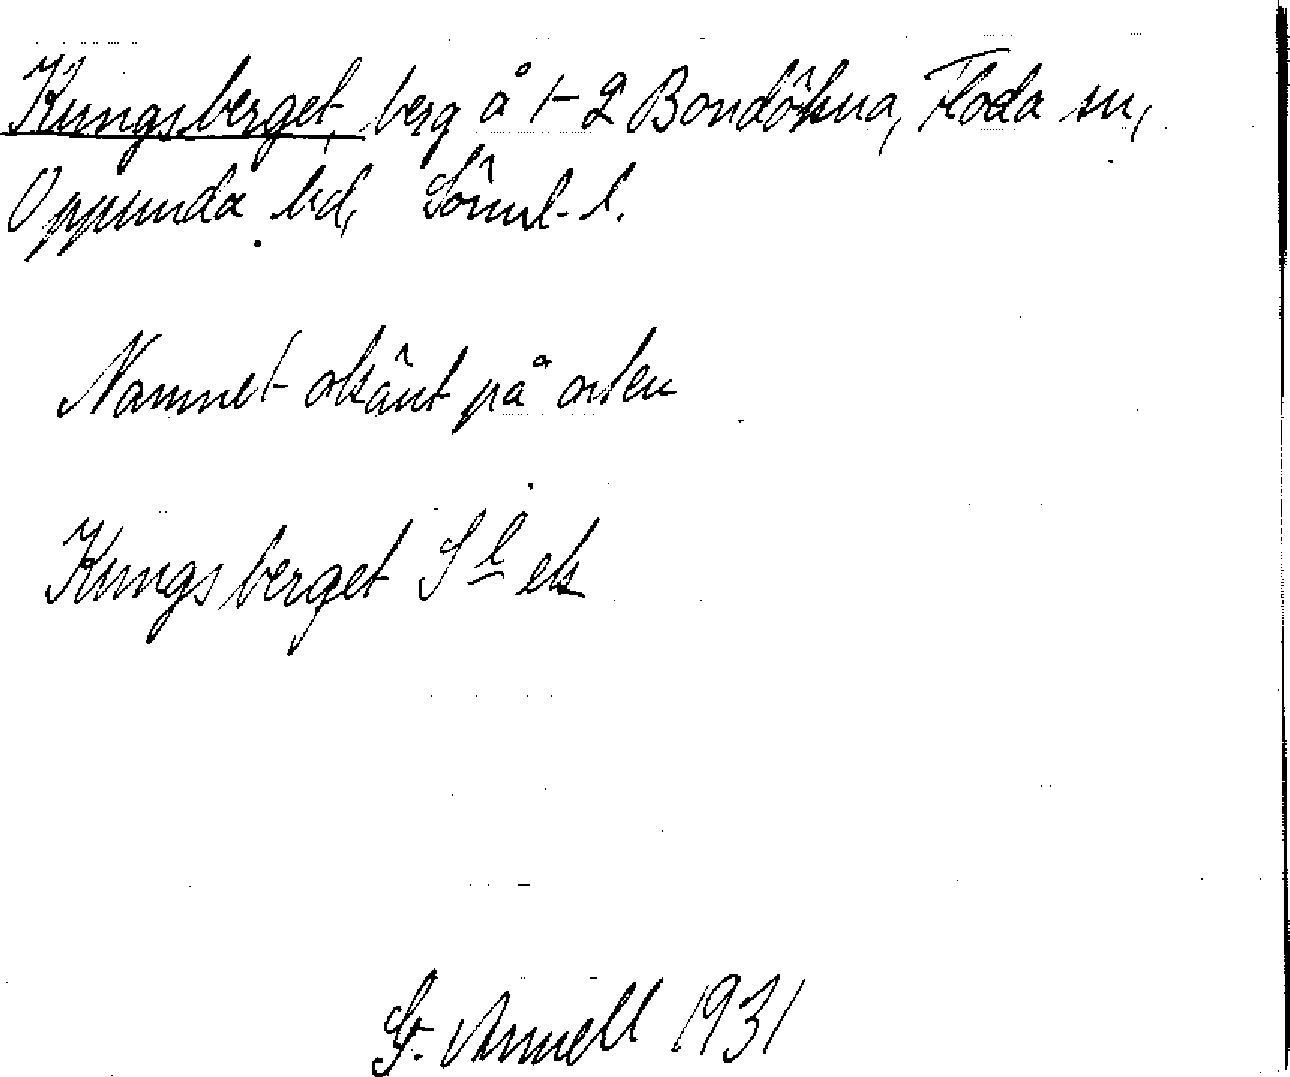 Kungsberget, berg å 1-2 Bondökna, Floda sn,
Oppunda hd, Söml. l.
Namnet okänt på orten
Kungsberget Sl ek
G. Arnell 1931